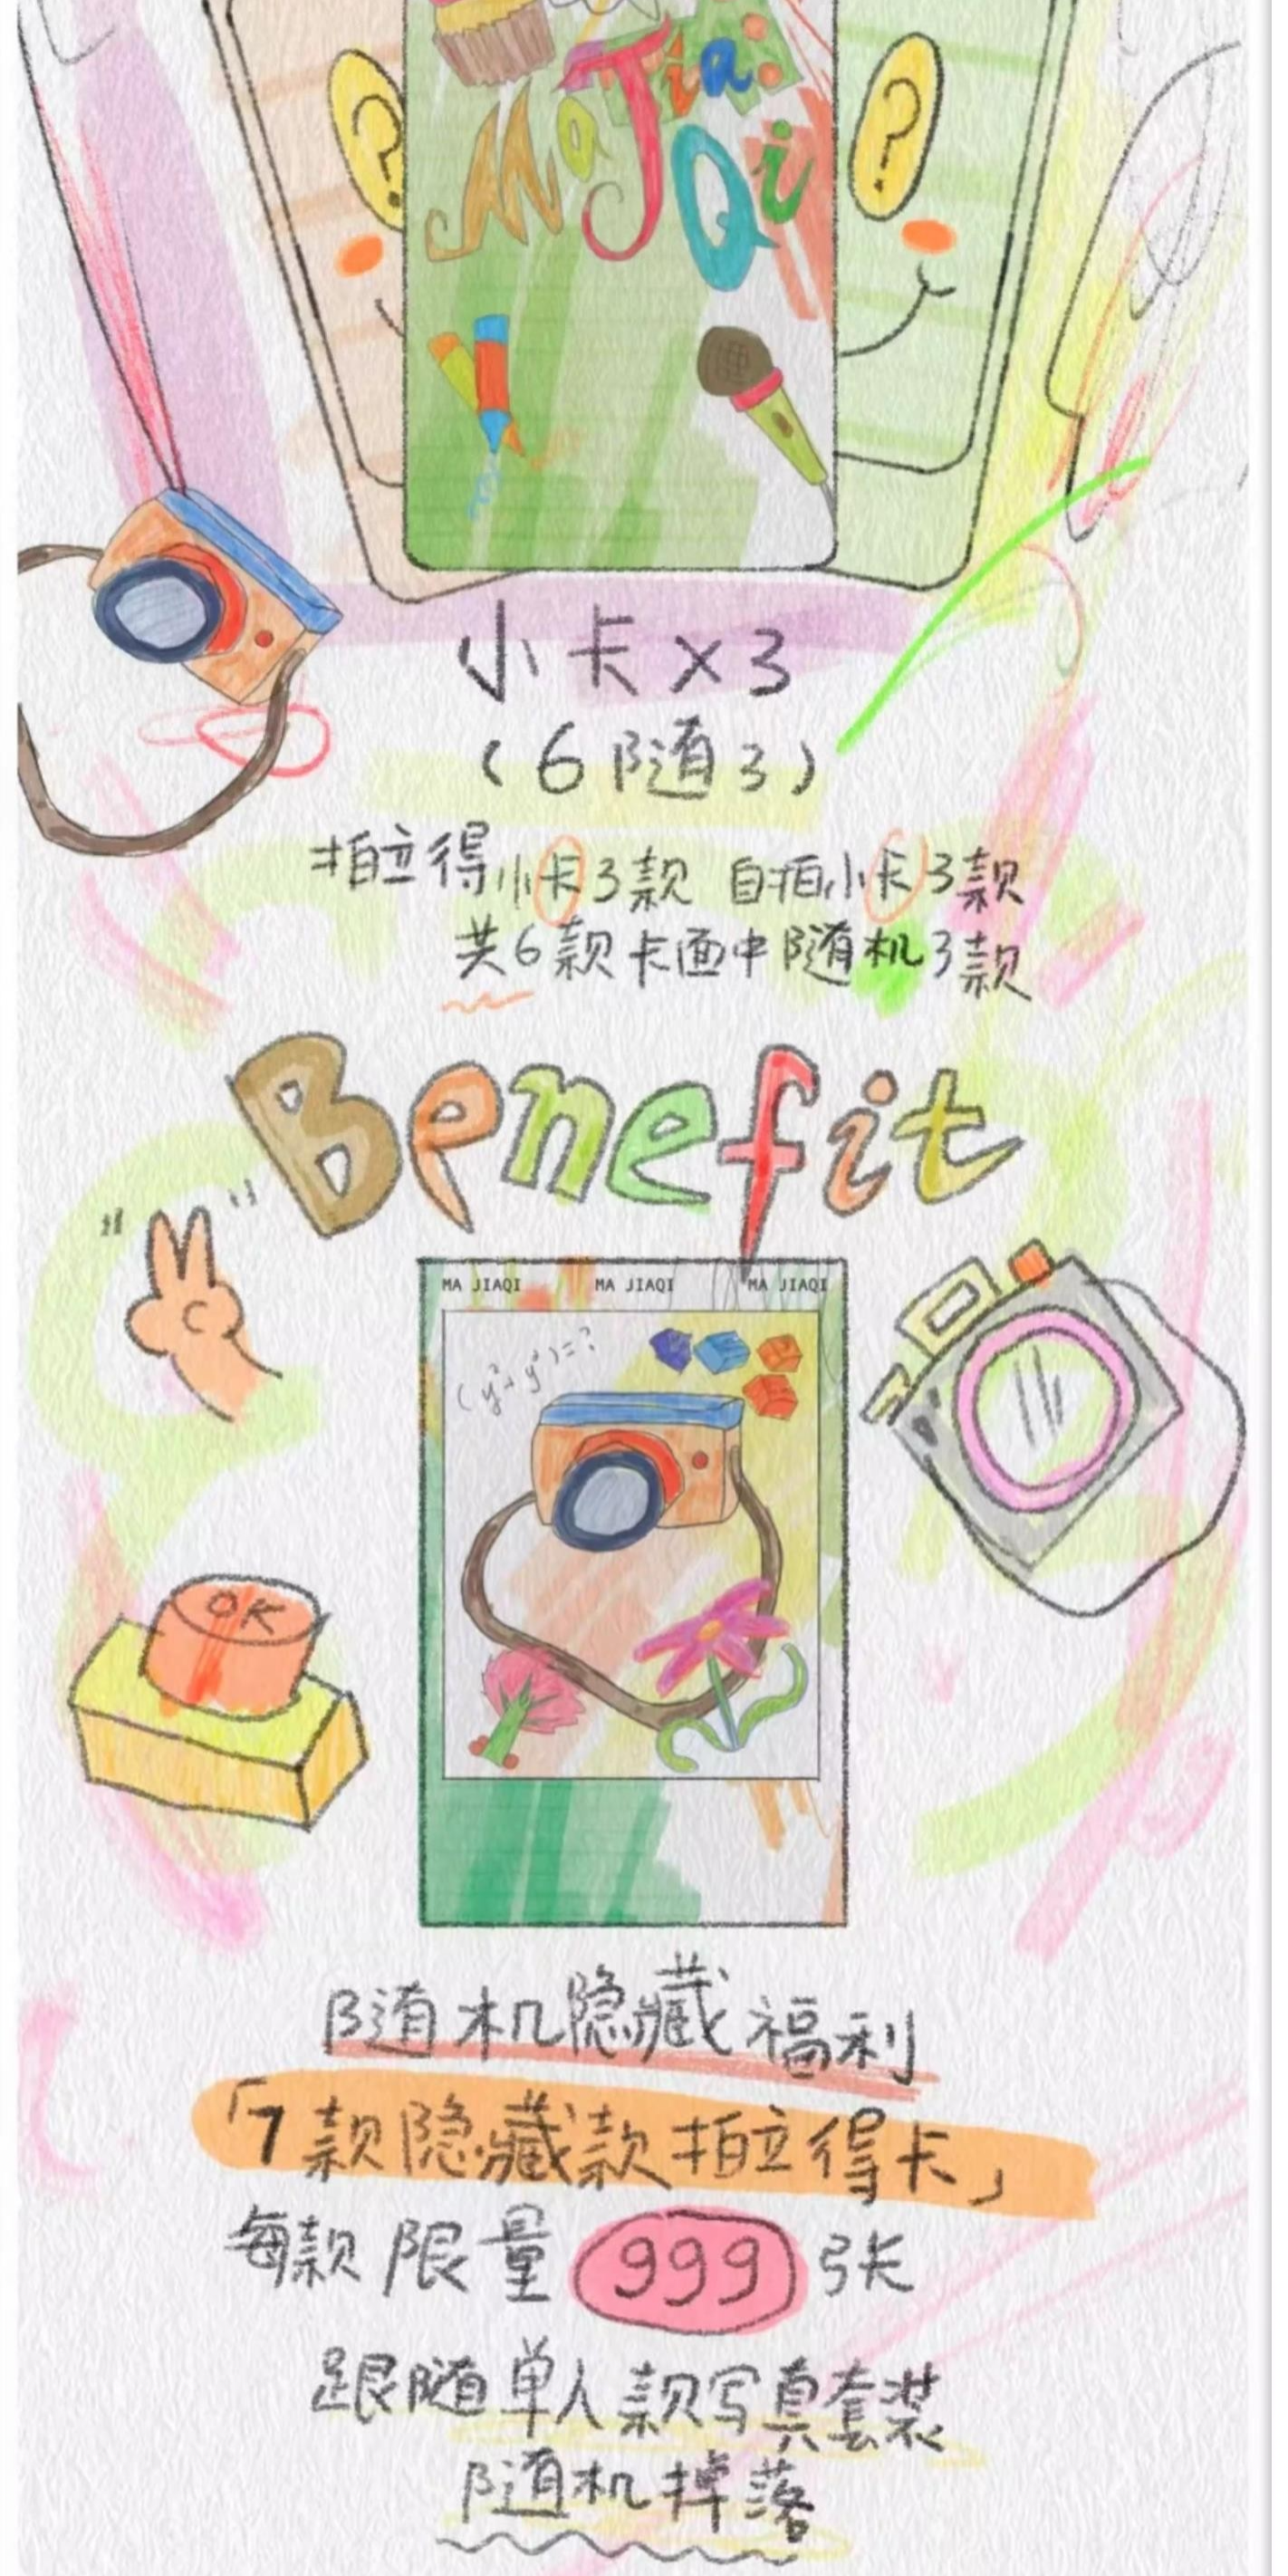 Ma Jia Qi
? ?
小卡×3
(6随3)
拍立得小卡3款 自拍小卡3款
共6款卡面中随机3款
Benefit
MA JIAQI MA JIAQI MA JIAQI
(y²+y²)=?
OK
随机隐藏福利
「7款隐藏款拍立得卡」
每款限量999张
跟随单人款写真套装
随机掉落